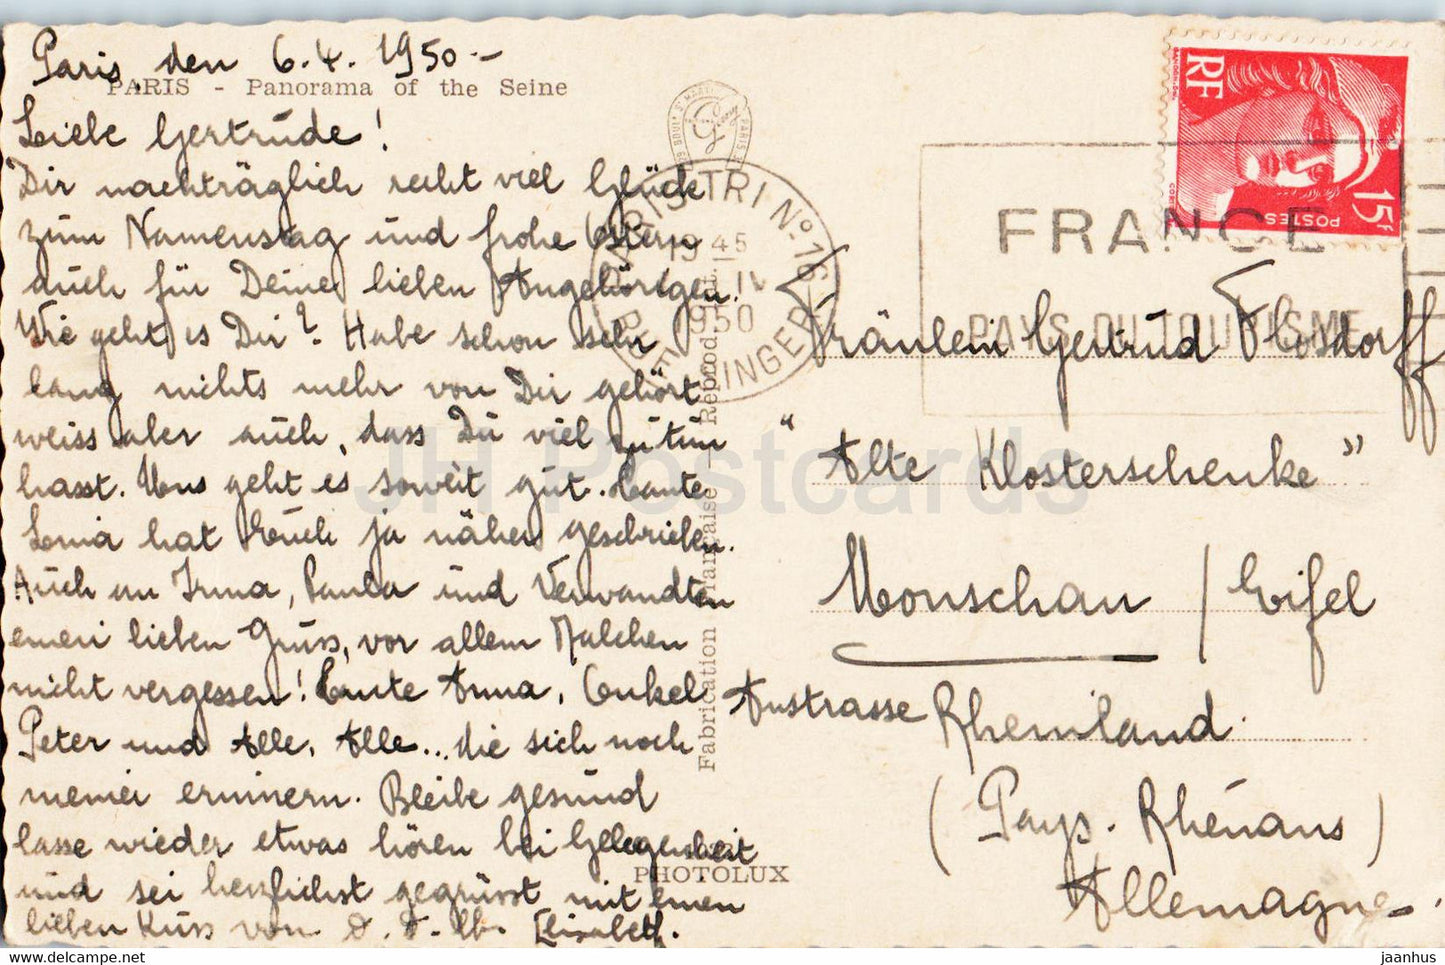 Paris, den 6.4.1950.-
PARIS - Panorama of the Seine
Liebe Gertrude!
Dir nachträglich recht viel Glück
zum Namenstag und frohe Ostern
auch für Deine lieben Angehörigen.
Wie geht es Dir? Habe schon sehr
lang nichts mehr von Dir gehört
weiss aber auch, dass Du viel zu tun
hasst. Uns geht es soweit gut. Tante
hat Euch ja näher geschrieben.
Auch an Irma, und Verwandten
einen lieben Gruss, vor allem Malchen
nicht vergessen! Tante Anna, Onkel
Peter und Alle, Alle... die sich noch
meiner erinnern. Bleibe gesund
lasse wieder etwas hören bei Gelegenheit
und sei herzlichst gegrüsst mit einen
lieben Kuss von d. d. lb. Elisabeth.
Fabrication Française - Reprod. Int.
PHOTOLUX
39 BOUL. ST MARTIN PARIS
PARIS TRI Nº 16
19 45
IV
1950
FRANCE
PAYS DU TOURISME
RF
15F
POSTES
Fräulein Gertrud Flosdorff
"Alte Klosterschenke"
Monschau / Eifel
Austrasse Rheinland.
(Pays. Rhénans)
Allemagne.
JH Postcards
www.delcampe.net
jaanhus